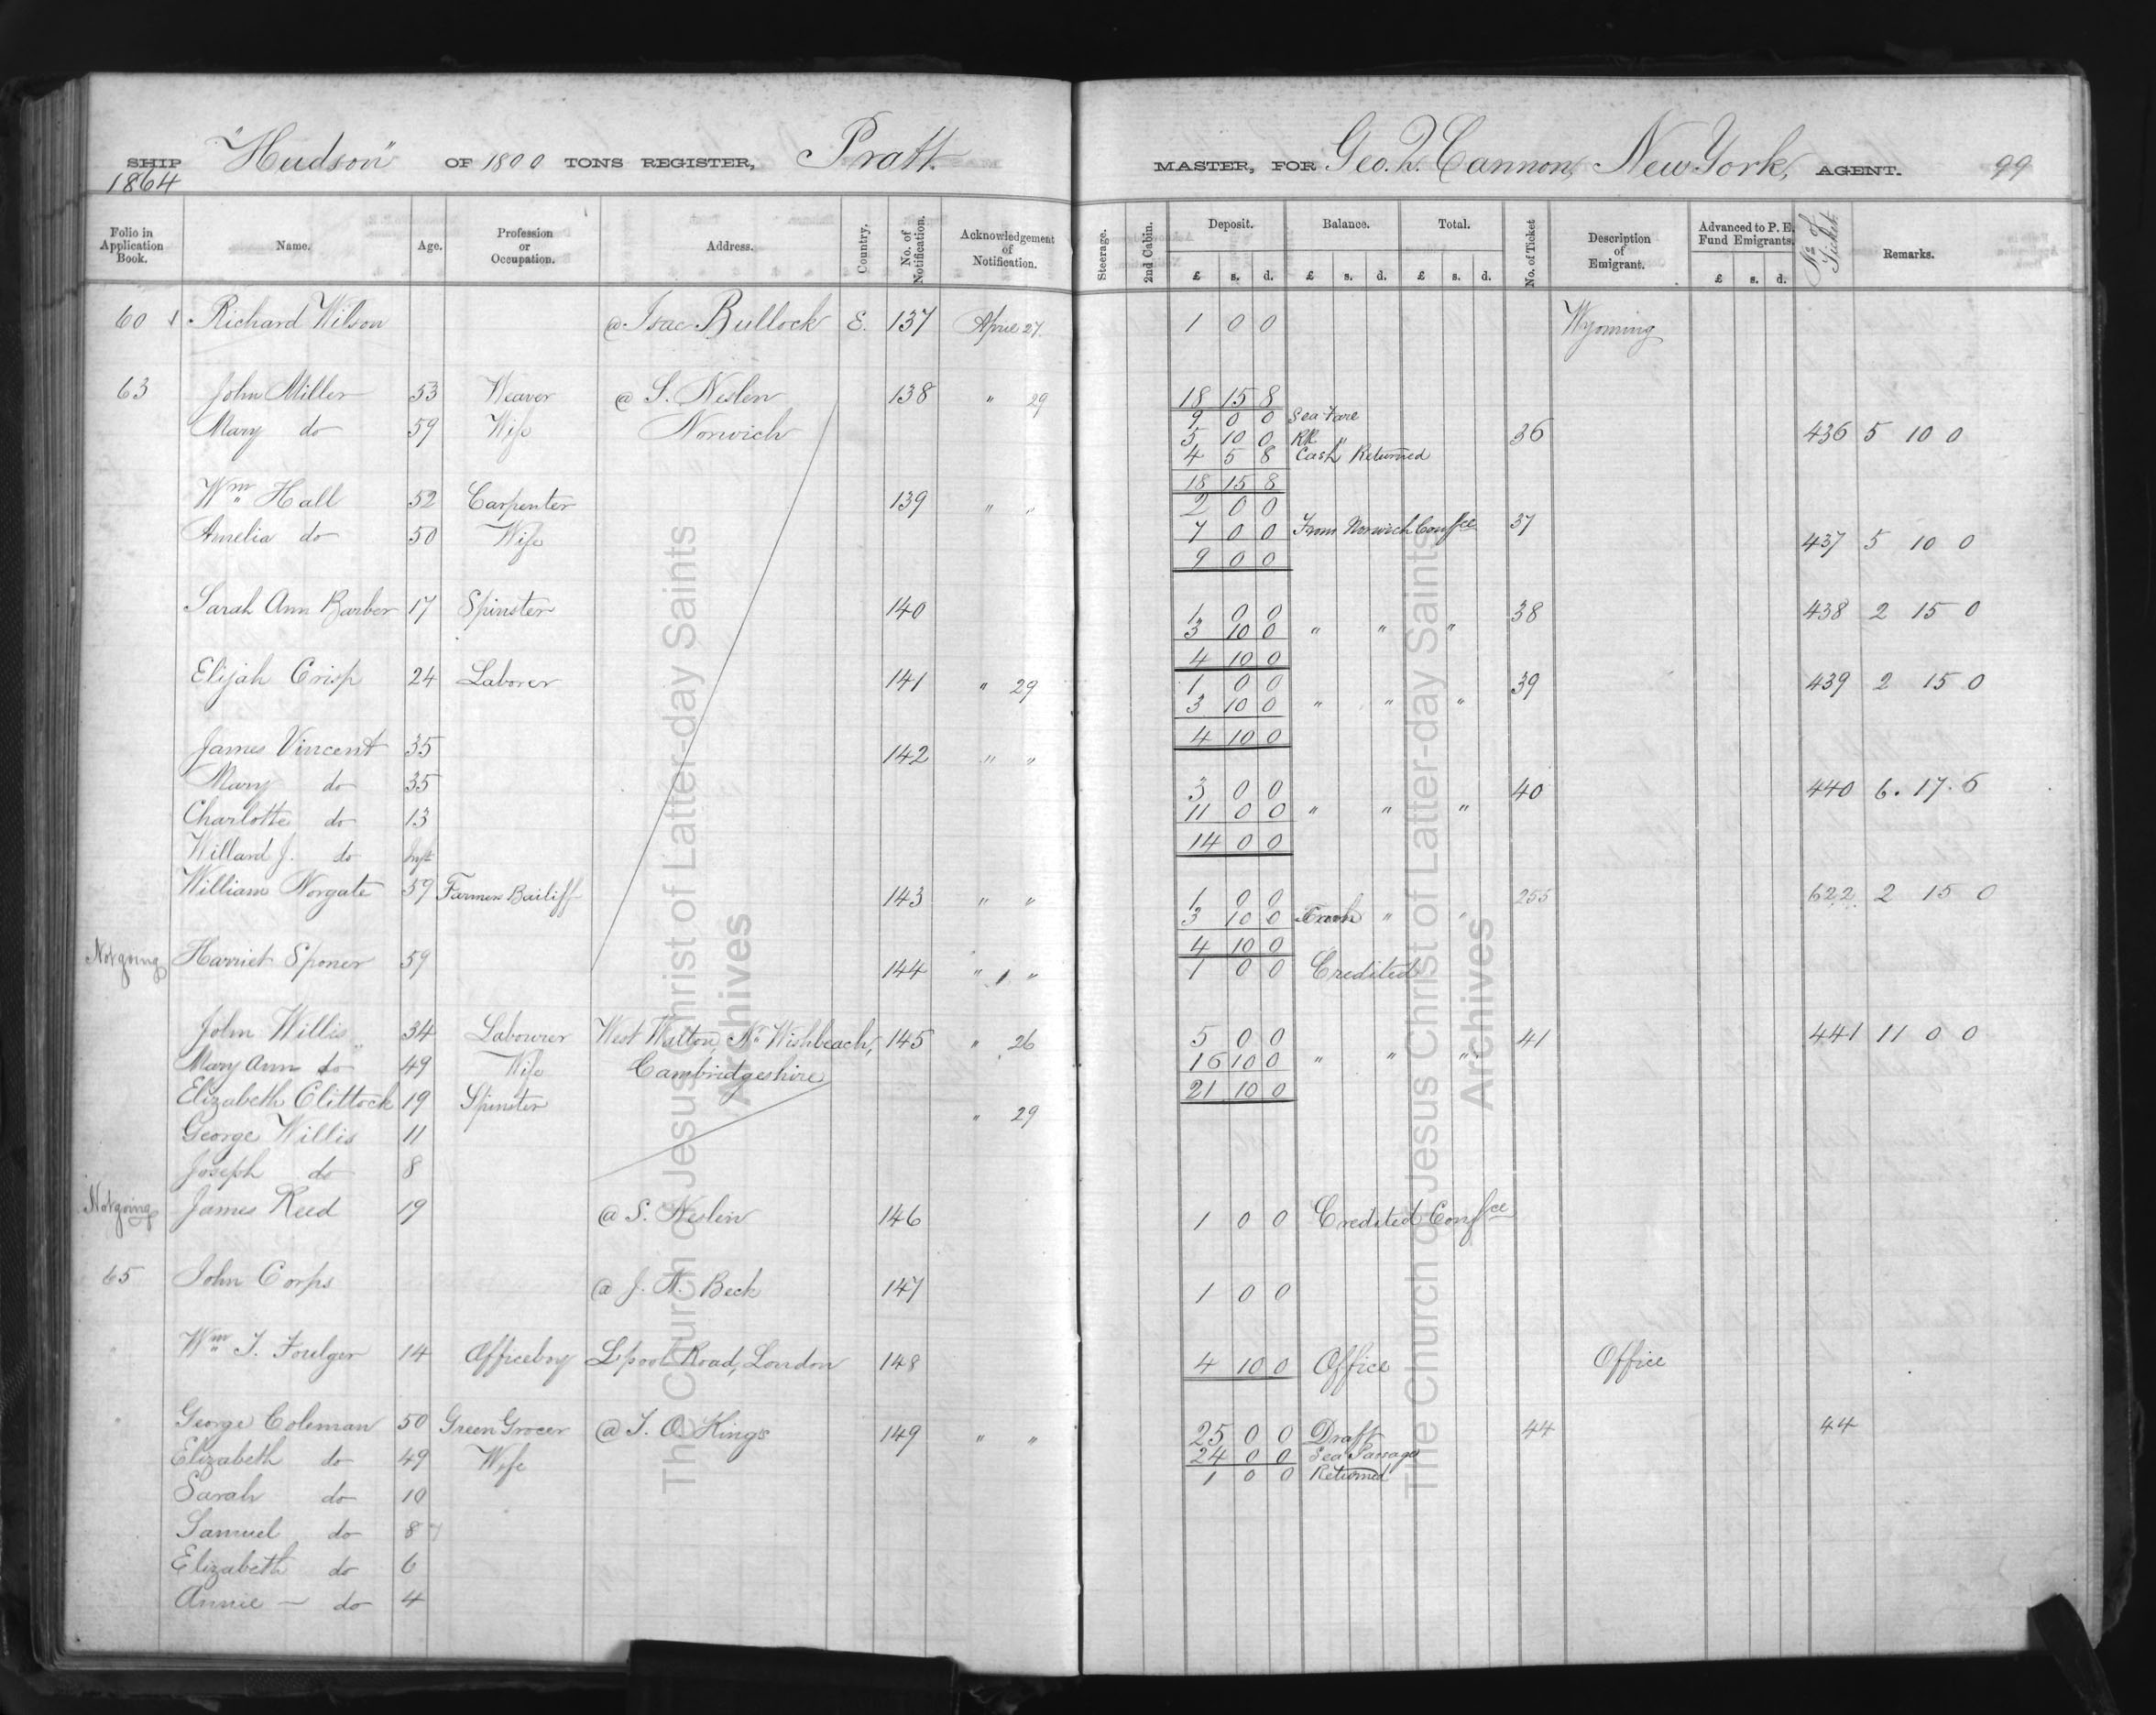 SHIP "Hudson" OF 1800 TONS REGISTER, Pratt MASTER, FOR Geo. Q. Cannon, New York, AGENT. 99
1864
Folio in Application Book. Name. Age. Profession or Occupation. Address. Country. No. of Notification. Acknowledgement of Notification. Steerage. 2nd Cabin. Deposit. Balance. Total. No. of Ticket Description of Emigrant. Advanced to P. E. Fund Emigrants. No. of Ticket. Remarks.
£ s. d. £ s. d. £ s. d. £ s. d.
60 Richard Wilson @ Isac Bullock E. 137 April 27. 1 0 0 Wyoming
63 John Miller 53 Weaver @ S. Neslen 138 " 29 18 15 8
9 0 0 Sea Fare
Mary do 59 Wife Norwich 5 10 0 RR " 36 436 5 10 0
4 5 8 Cash Returned
18 15 8
Wm Hall 52 Carpenter 139 " " 2 0 0
Amelia do 50 Wife 7 0 0 From Norwich Confce 37 437 5 10 0
9 0 0
Sarah Ann Barber 17 Spinster 140 1 0 0 38 438 2 15 0
3 10 0 " " "
4 10 0
Elijah Crisp 24 Laborer 141 " 29 1 0 0 39 439 2 15 0
3 10 0 " " "
4 10 0
James Vincent 35 142 " "
Mary do 35 3 0 0 40 440 6. 17. 6
Charlotte do 13 11 0 0 " " "
14 0 0
Willard J. do Inft
William Norgate 59 Farmers Bailiff 143 " " 1 0 0 255 622 2 15 0
3 10 0 " "
4 10 0
Not going Harriet Sponer 59 144 " " 1 0 0 Credited
John Willis 34 Labourer West Walton, Nr Wishbeach, 145 " 26 5 0 0 41 441 11 0 0
Mary Ann do 49 Wife Cambridgeshire 16 10 0 " " "
21 10 0
Elizabeth Clittock 19 Spinster " 29
George Willis 11
Joseph do 8
Not going James Reed 19 @ S. Neslen 146 1 0 0 Credited Confce
65 John Corps @ J. N. Beck 147 1 0 0
" Wm T. Foulger 14 Officeboy Lpool Road, London 148 4 10 0 Office Office
" George Coleman 50 Green Grocer @ T. O. Kings 149 " " 25 0 0 Draft 44 44
Elizabeth do 49 Wife 24 0 0 Sea Passage
1 0 0 Returned
Sarah do 10
Samuel do 8 7
Elizabeth do 6
Annie — do 4
The Church of Jesus Christ of Latter-day Saints
Archives
The Church of Jesus Christ of Latter-day Saints
Archives